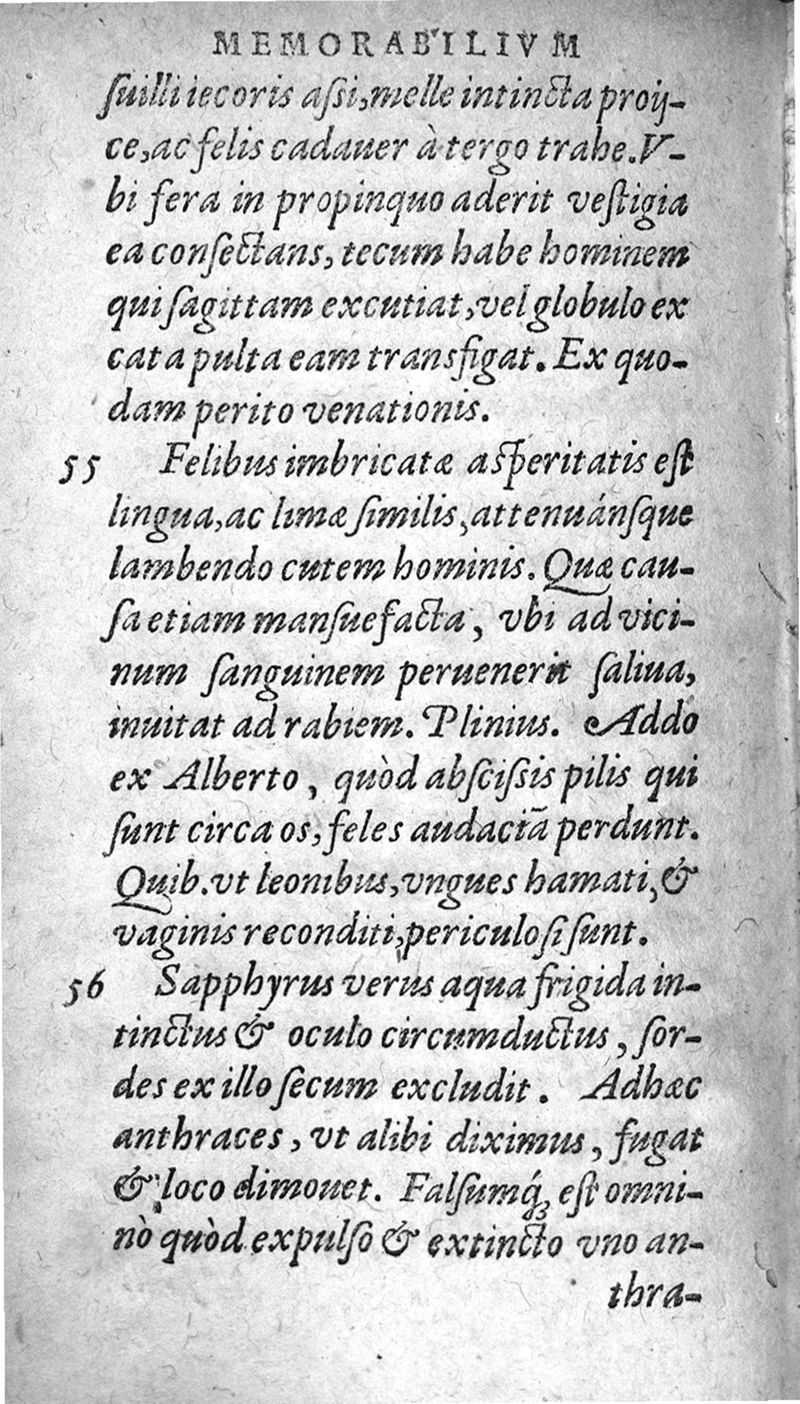 MEMORABILIVM
suilli iecoris assi, melle intincta proij-
ce, ac felis cadauer à tergo trahe. V-
bi fera in propinquo aderit vestigia
ea consectans, tecum habe hominem
qui sagittam excutiat, vel globulo ex
catapulta eam transfigat. Ex quo-
dam perito venationis.
55 Felibus imbricatæ asperitatis est
lingua, ac limæ similis, attenuánsque
lambendo cutem hominis. Quæ cau-
sa etiam mansuefacta, vbi ad vici-
num sanguinem peruenerit saliua,
inuitat ad rabiem. Plinius. Addo
ex Alberto, quòd abscissis pilis qui
sunt circa os, feles audaciā perdunt.
Quib. vt leonibus, vngues hamati, &
vaginis reconditi, periculosi sunt.
56 Sapphyrus verus aqua frigida in-
tinctus & oculo circumductus, sor-
des ex illo secum excludit. Adhæc
anthraces, vt alibi diximus, fugat
& loco dimouet. Falsumq́; est omni-
nò quòd expulso & extincto vno an-
thra-